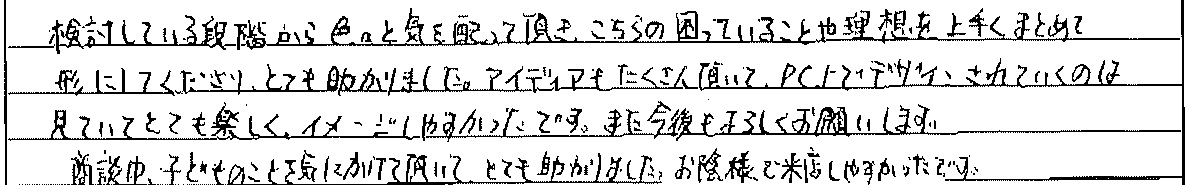 検討している段階から色々と気を配って頂き、こちらの困っていることや理想を上手くまとめて
形にしてくださり、とても助かりました。アイディアもたくさん頂いて、PC上でデザインされていくのは
見ていてとても楽しく、イメージしやすかったです。また今後もよろしくお願いします。
商談中、子どものことを気にかけて頂いて、とても助かりました。お陰様で来店しやすかったです。